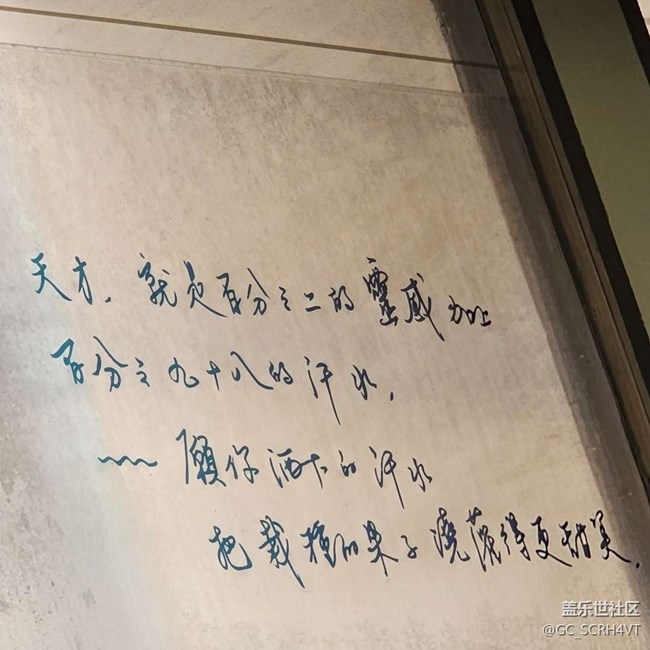 天才，就是百分之二的靈感加上
百分之九十八的汗水，
~~~ 願你洒下的汗水
把栽種的果子澆灌得更甜美。
盖乐世社区
@GC_SCRH4VT